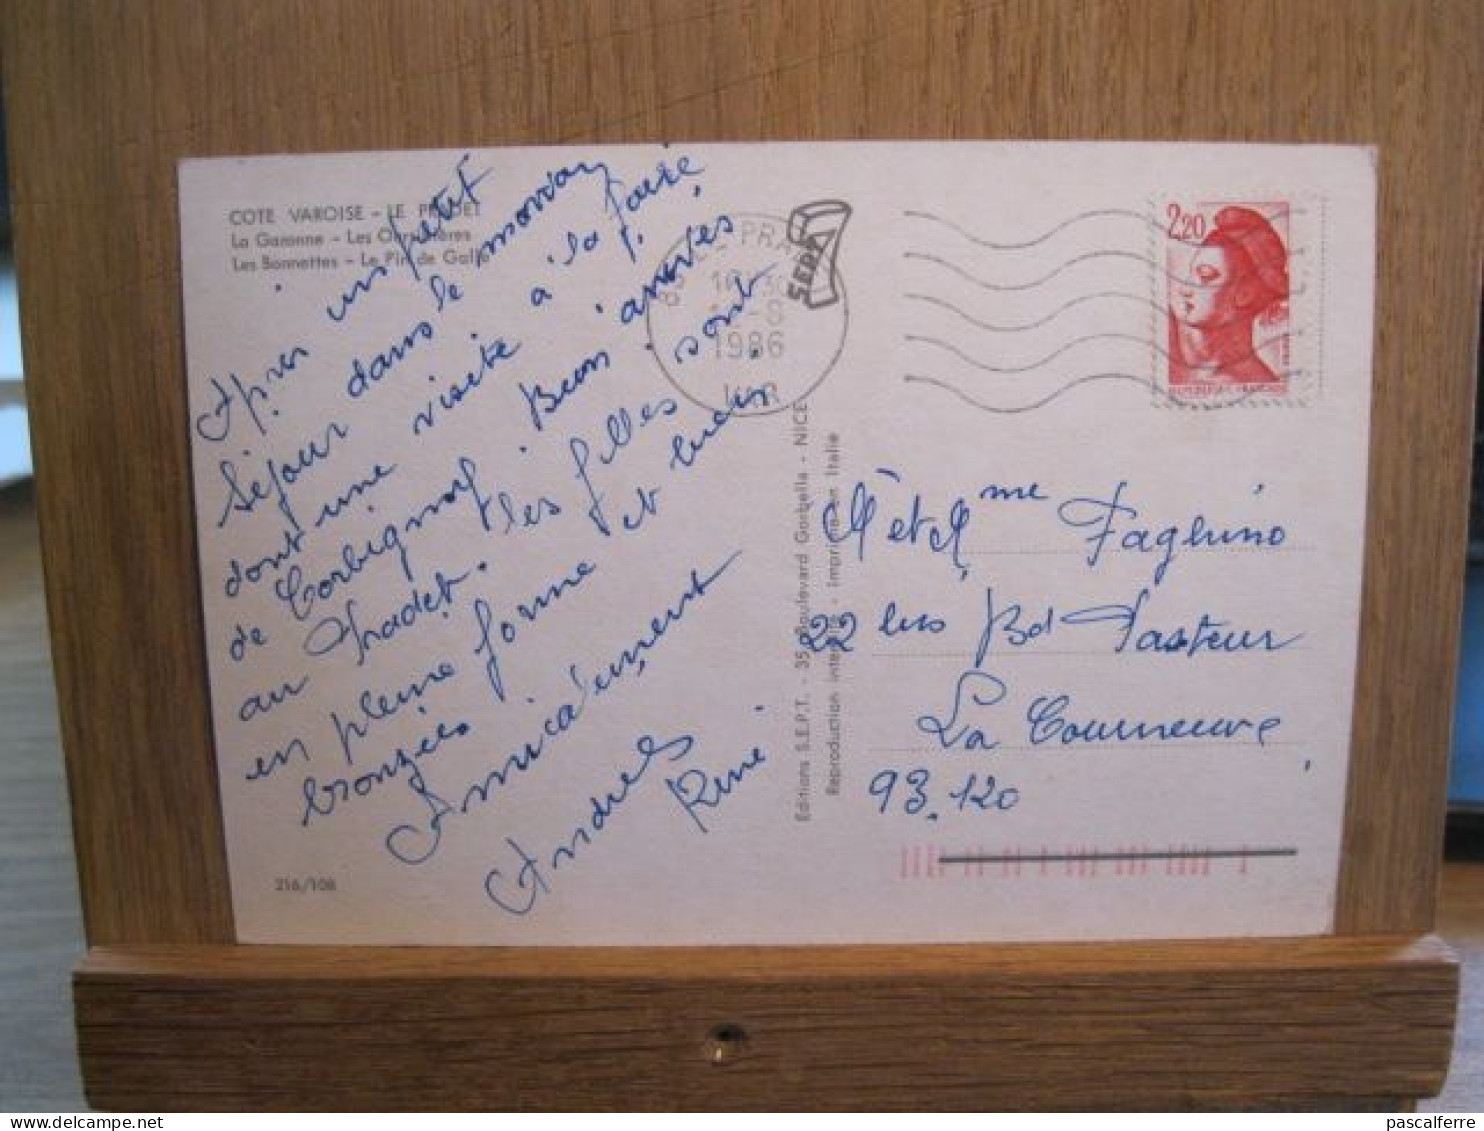 COTE VAROISE - LE PRADET
La Garonne - Les Oursinières
Les Bonnettes - Le Pin de Galle
Après un petit
Séjour dans le morvan
dont une visite à la foire
de Corbigny. Bien arrivées
au Pradet. les filles sont
en pleine forme et bien
bronzées
Amicalement
Andrée
René
216/108
Editions S.E.P.T. - 35 Boulevard Gorbella - NICE
Reproduction interdite - Imprimé en Italie
LE PRADET
1986
VAR
SEPT
2,20
REPUBLIQUE FRANÇAISE
M et Mme Faghino
22 bis Bd Pasteur
La Courneuve
93.120
pascalferre